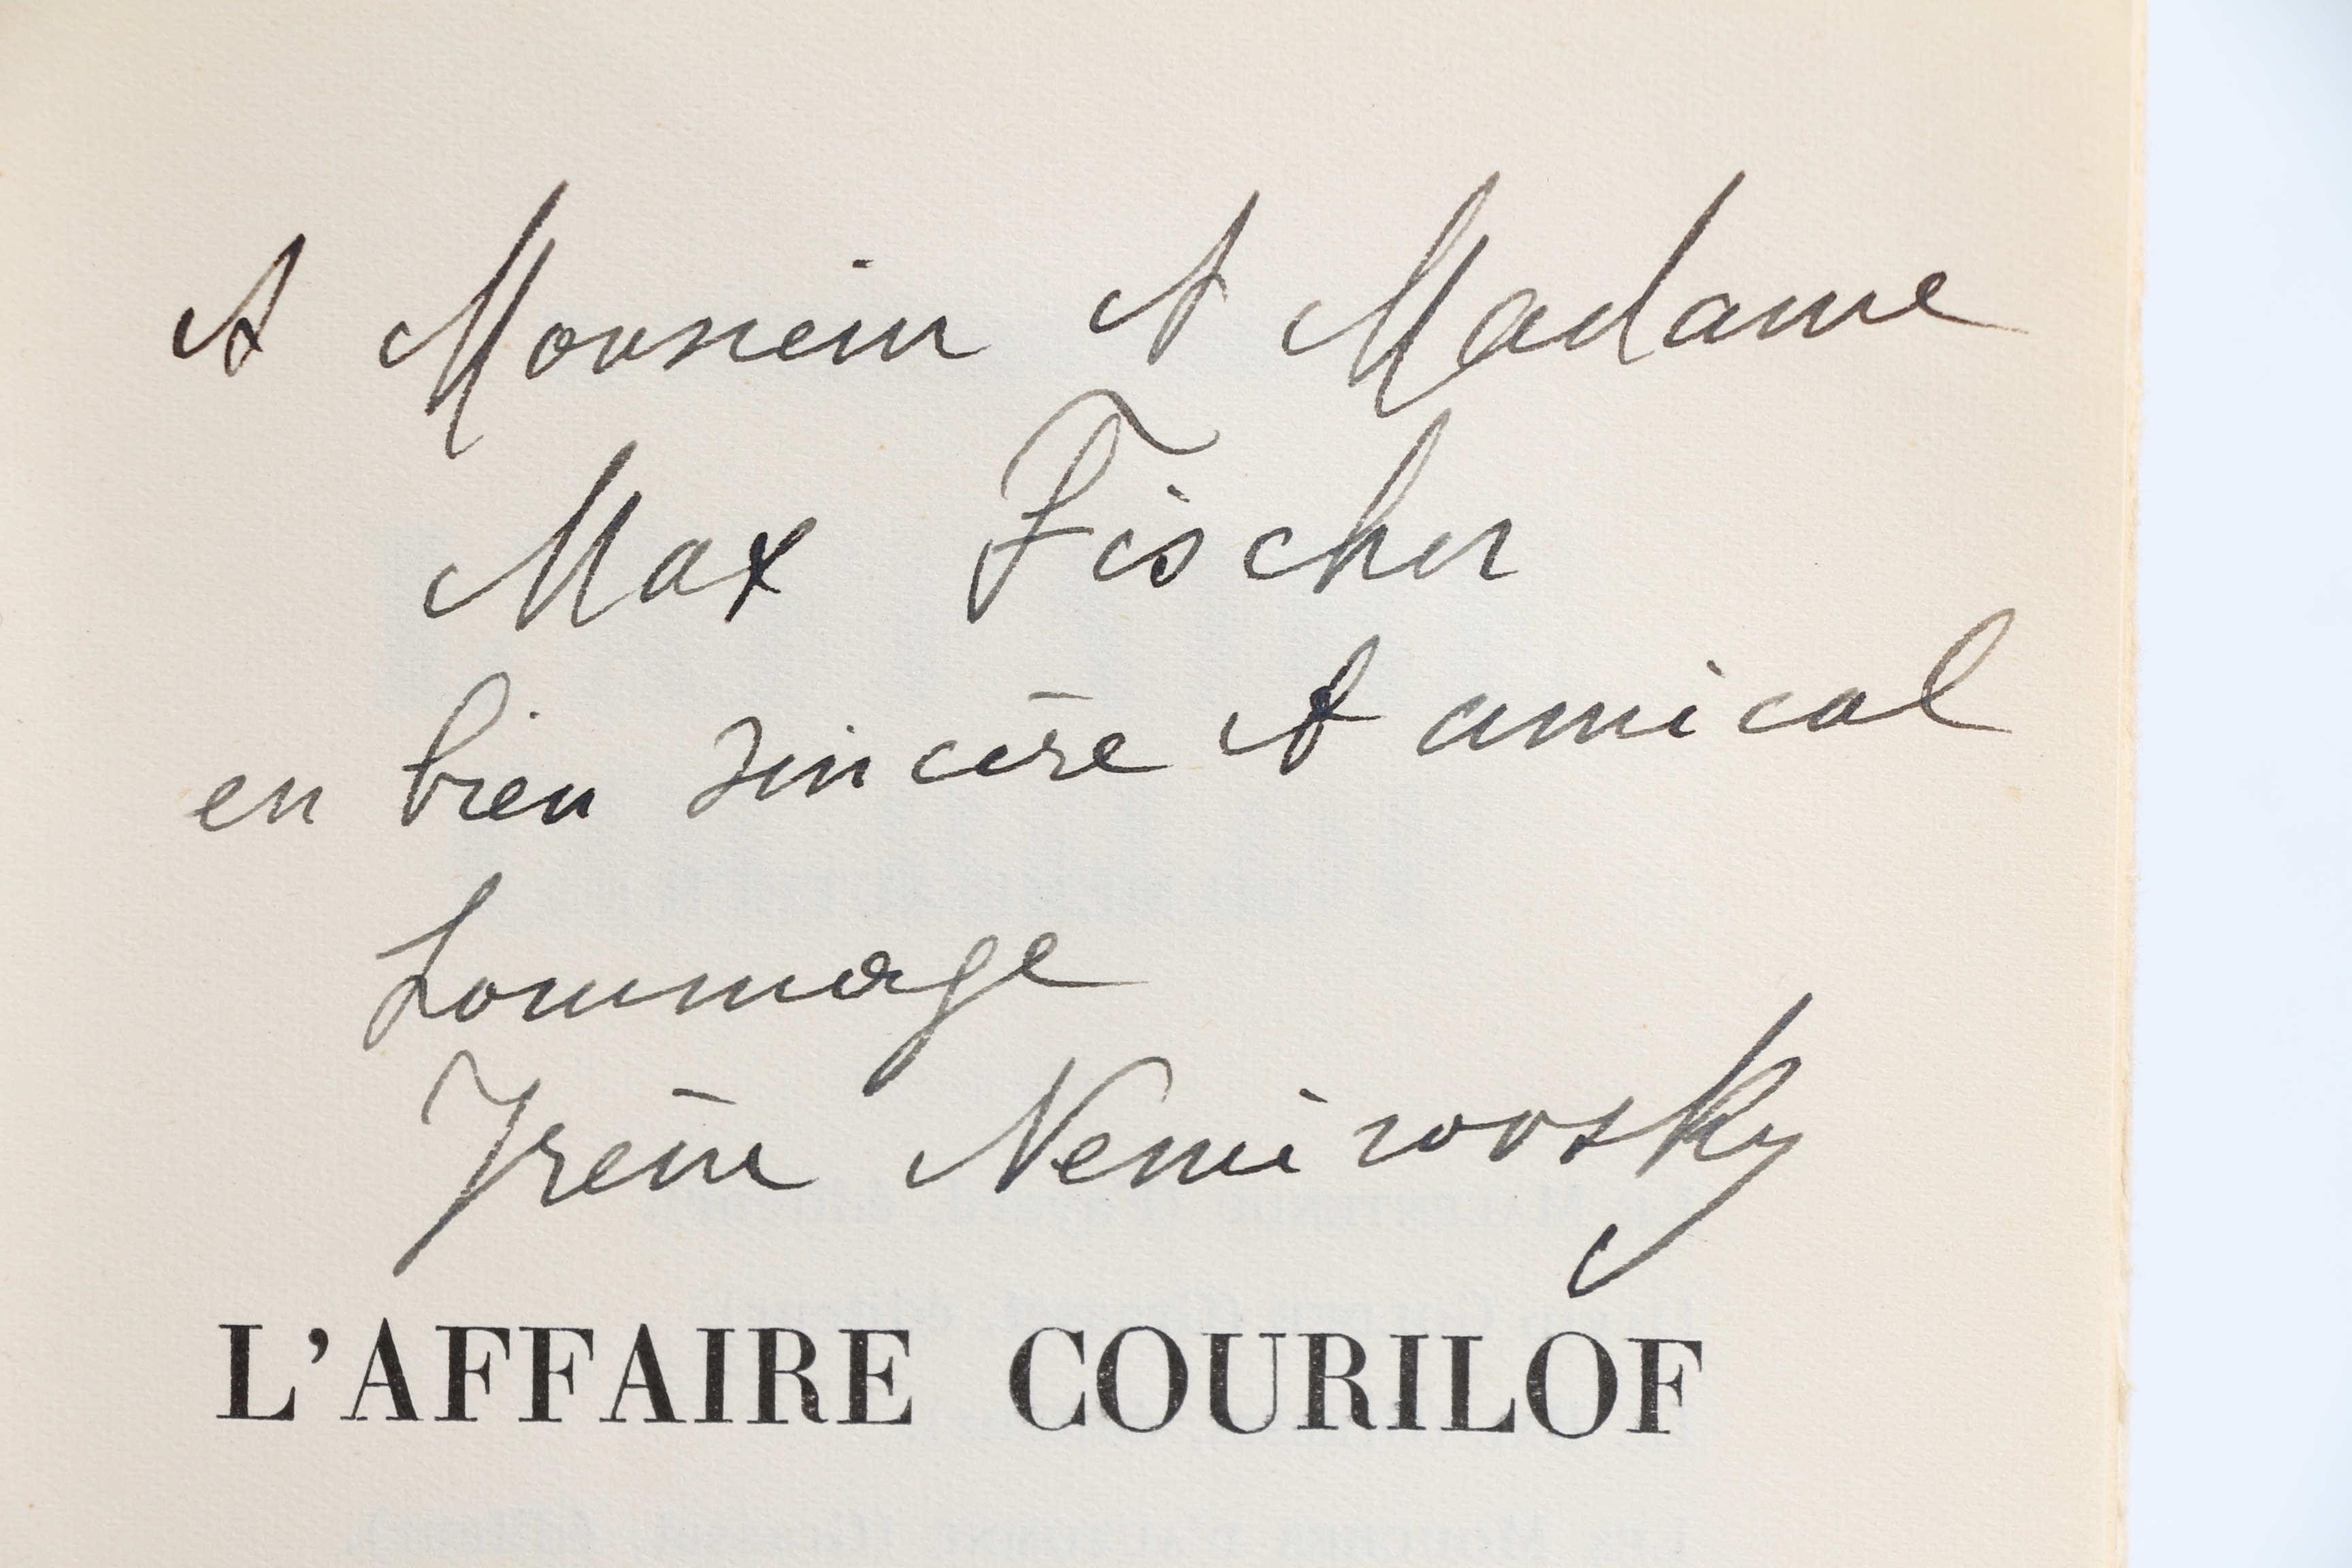 A Monsieur et Madame
Max Fischer
en bien sincère et amical
hommage
Irène Nemirovsky
L'AFFAIRE COURILOF